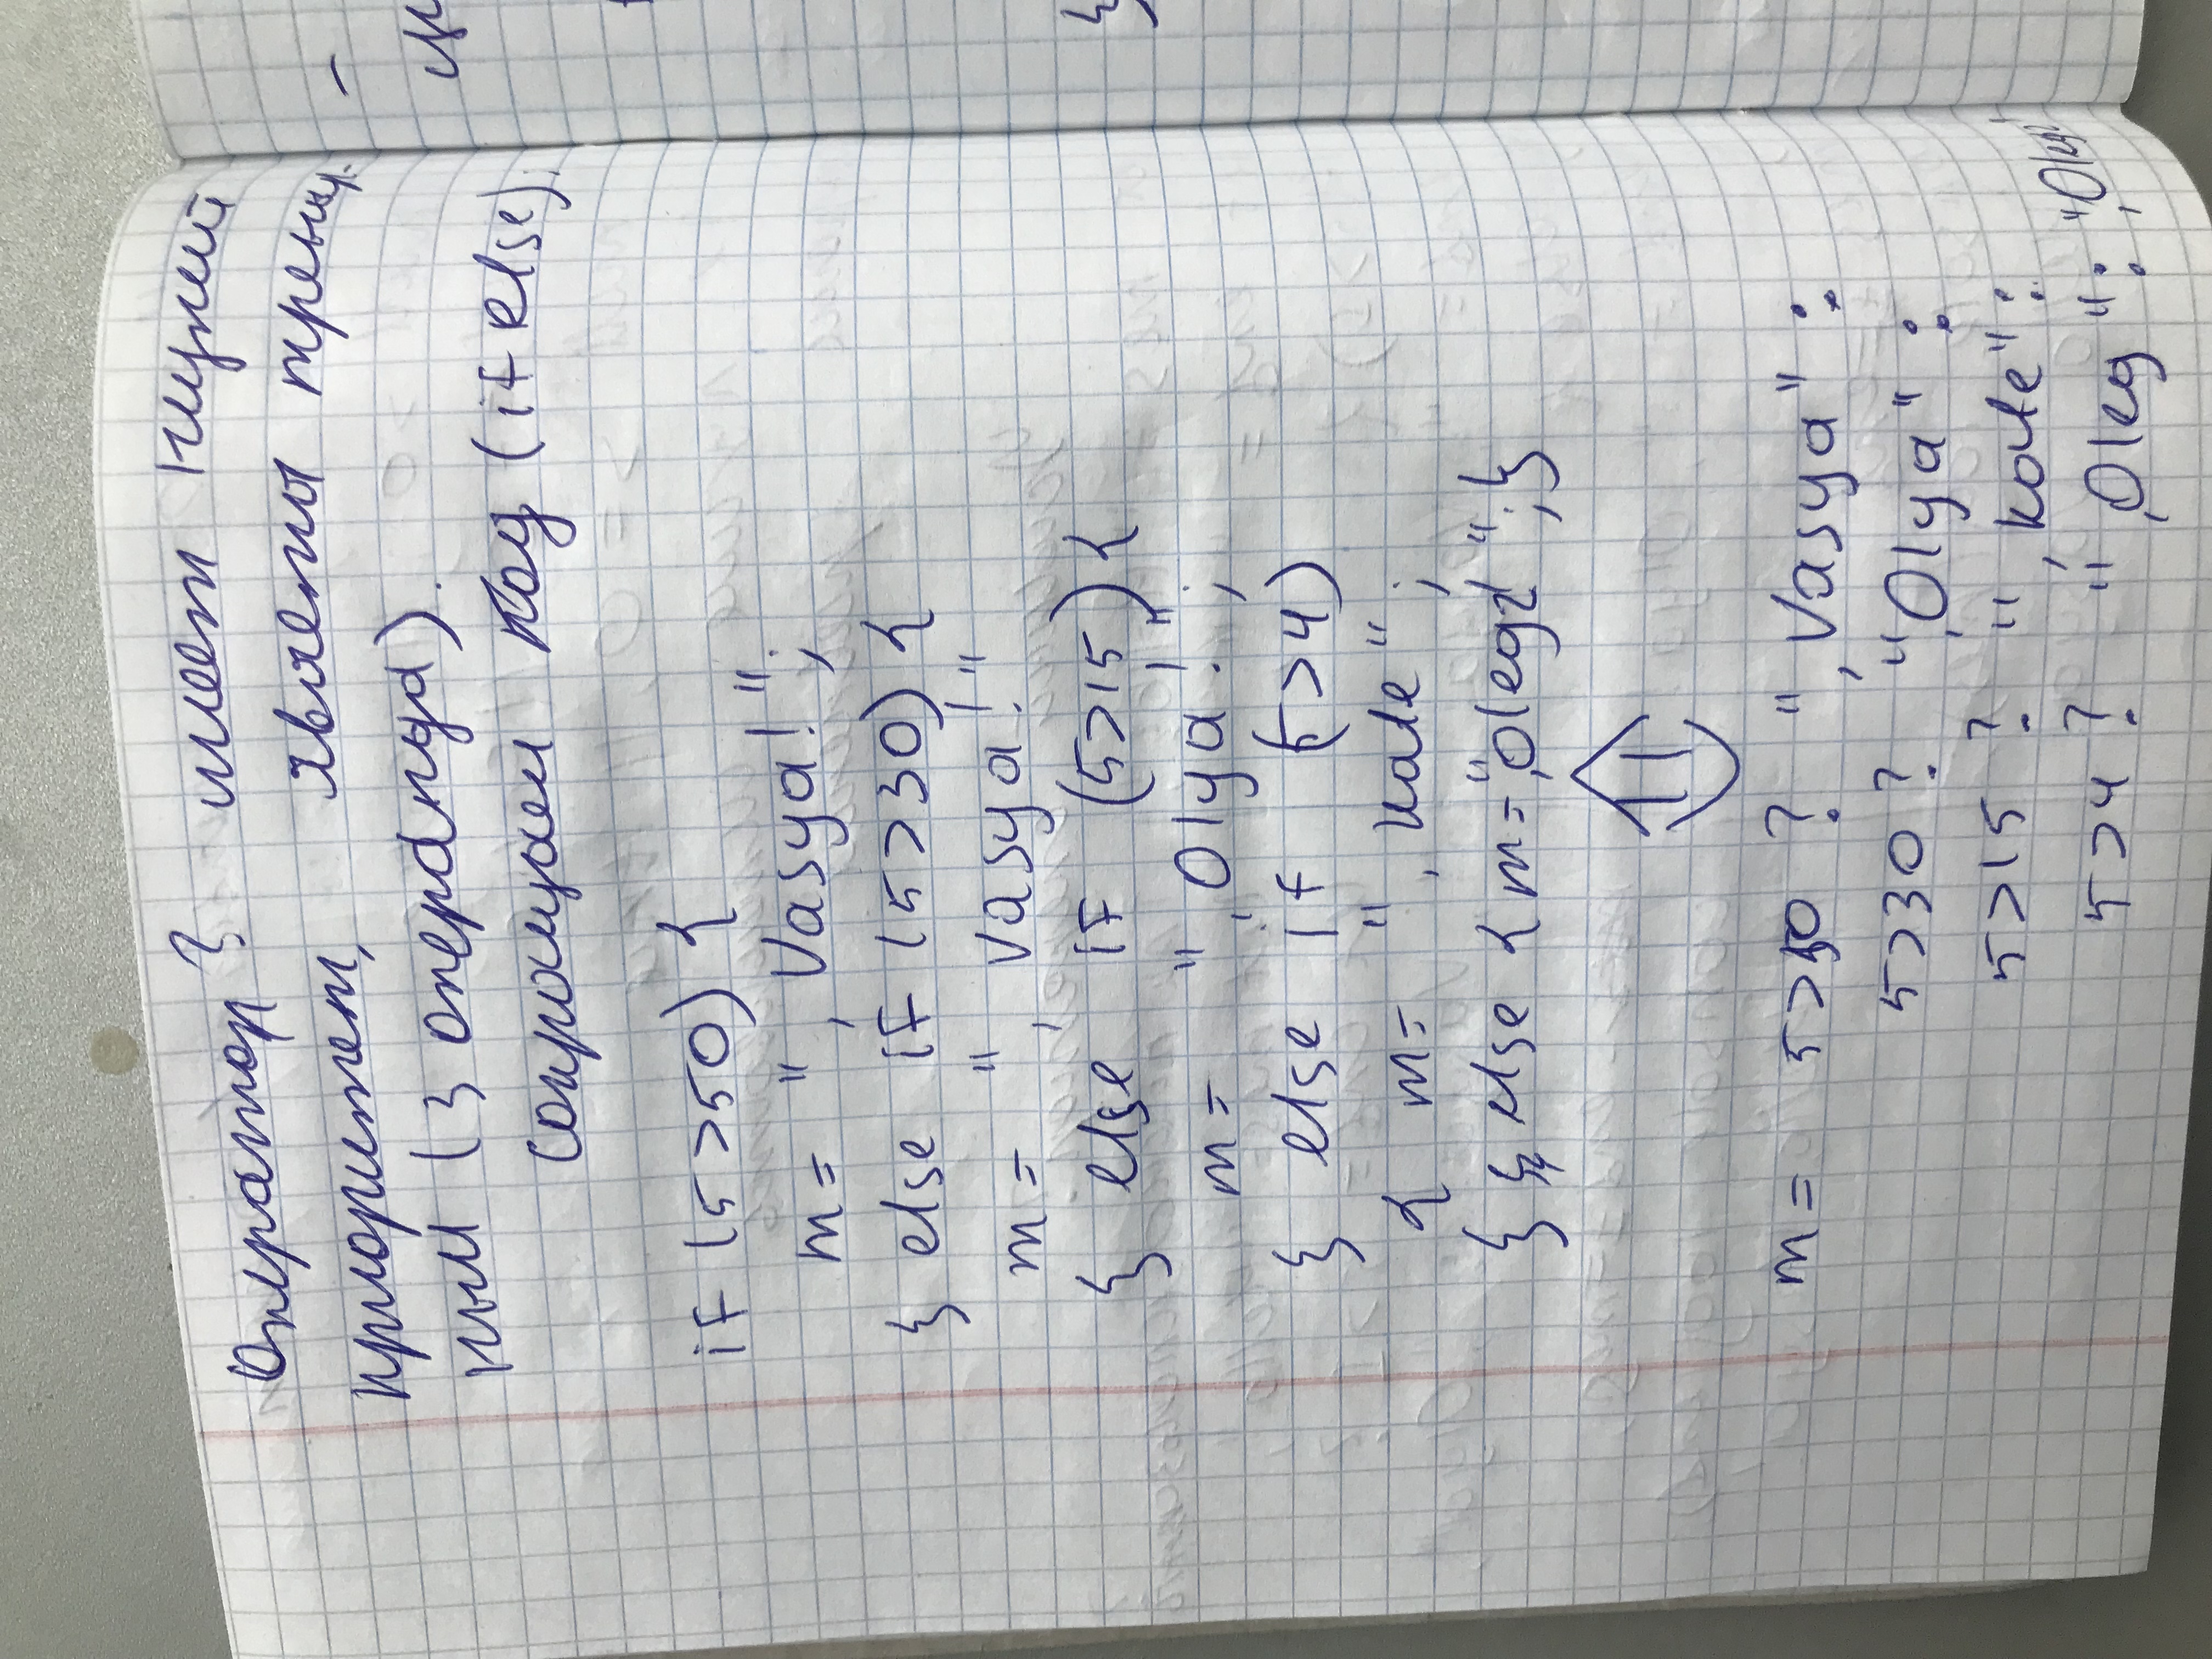 Оператор ? имеет низкий
приоритет, является тренар-
ным (3 операнда).
Сокращаем код (if else):
if (5>50) {
m= ", Vasya!";
} else if (5>30) {
m= ", Vasya!"
} else if (5>15) {
m= ", Olya!";
} else if (5>4)
{ m= ", kate";
} else {m=",oleg2";}
m= 5>50 ? ",Vasya" :
5>30 ? ",Olya" :
5>15 ? ", kate" :
5>4 ? ",Oleg" : ",Oleg2"